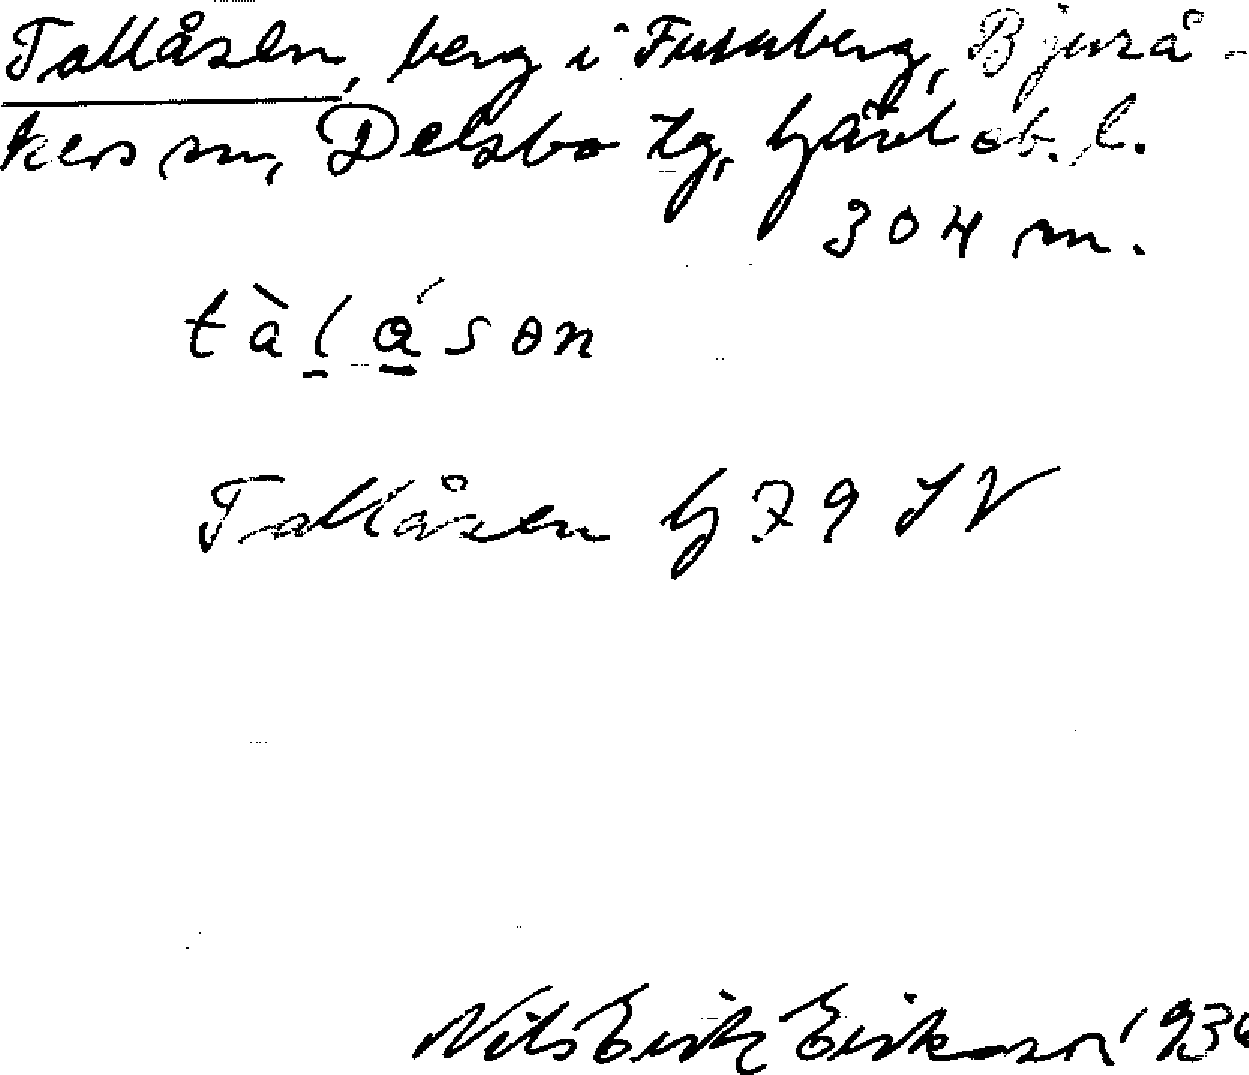 Tallåsen, berg i Furuberg, Bjurå-
kers sn, Delsbo tg, Gävleb. l.
304 m.
tàl̠ǻ̠sɵn
Tallåsen G 79 SV
Nils Erik Eriksson 193